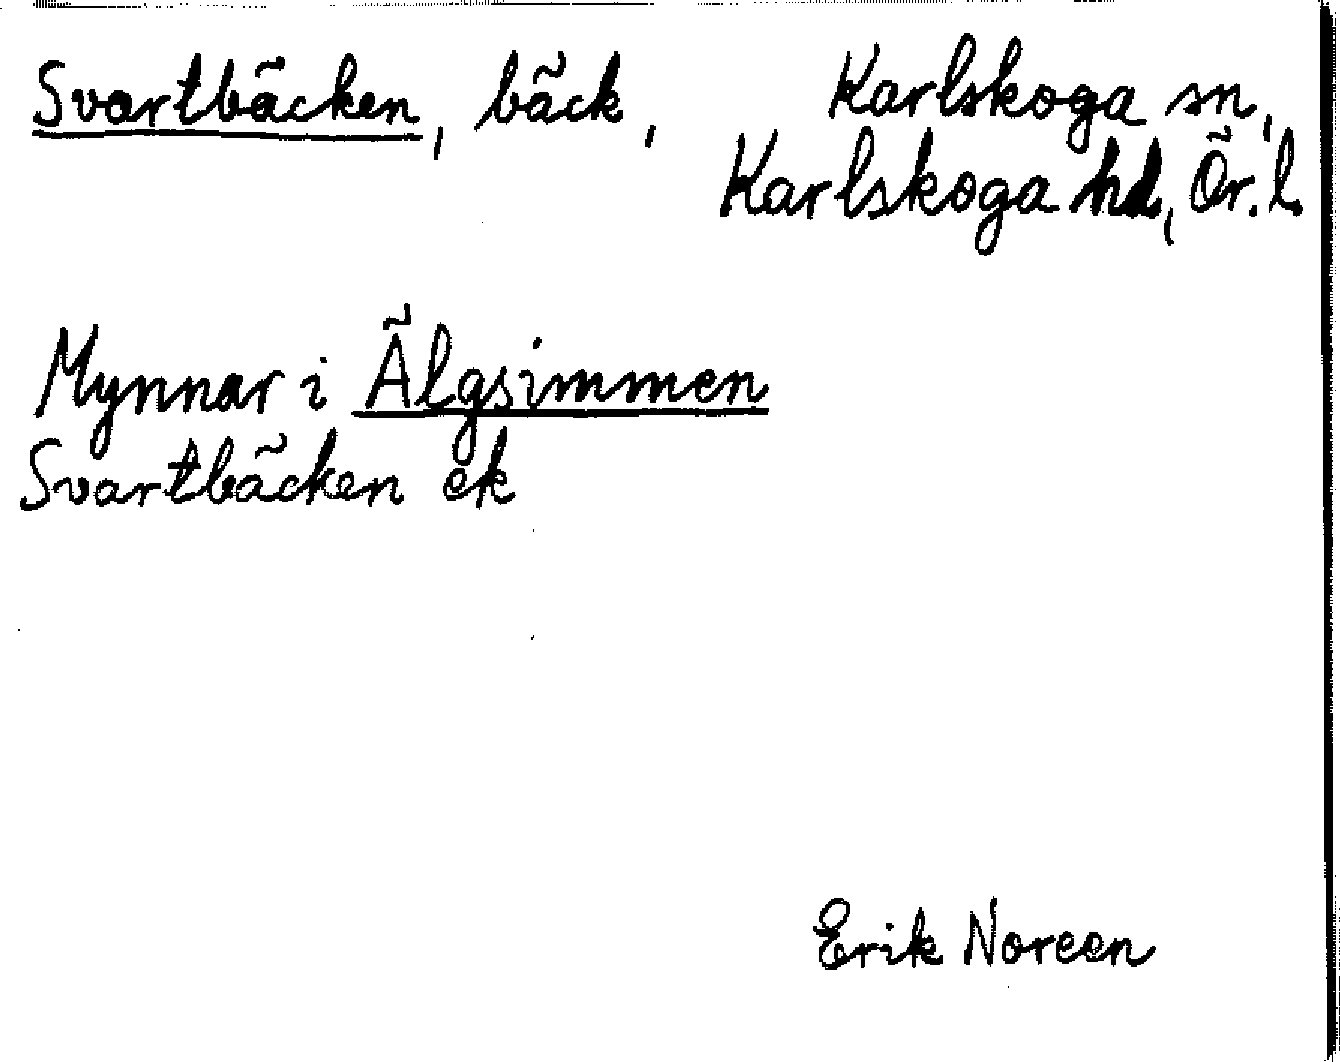 Svartbäcken, bäck, Karlskoga sn,
Karlskoga hd, Ör. l.
Mynnar i Älgsimmen
Svartbäcken ek
Erik Noreen